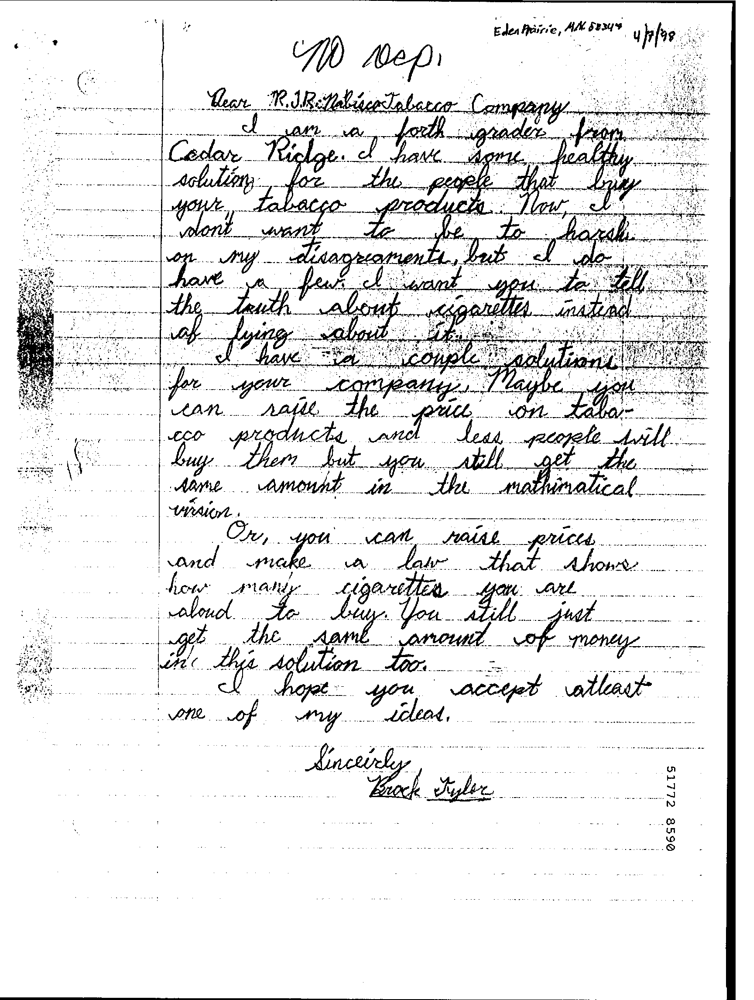 Eden Prairie, MN 55347 4/7/98
NO Rep.
Dear R.J.R. Nabisco Tabacco Company
I am a forth grader from
Cedar Ridge. I have some healthy
solution for the people that buy
your tabacco products. Now, I
don't want to be to harsh
on my disagreaments, but I do
have a few. I want you to tell
the truth about cigarettes instead
of lying about it.
I have a couple solutions
for your company. Maybe you
can raise the price on taba-
cco products and less people will
buy them but you still get the
same amount in the mathimatical
virsion.
Or, you can raise prices
and make a law that shows
how many cigarettes you are
aloud to buy. You still just
get the same amount of money
in this solution too.
I hope you accept atleast
one of my ideas.
Sinceirly,
Brock Tyler
51772 8590